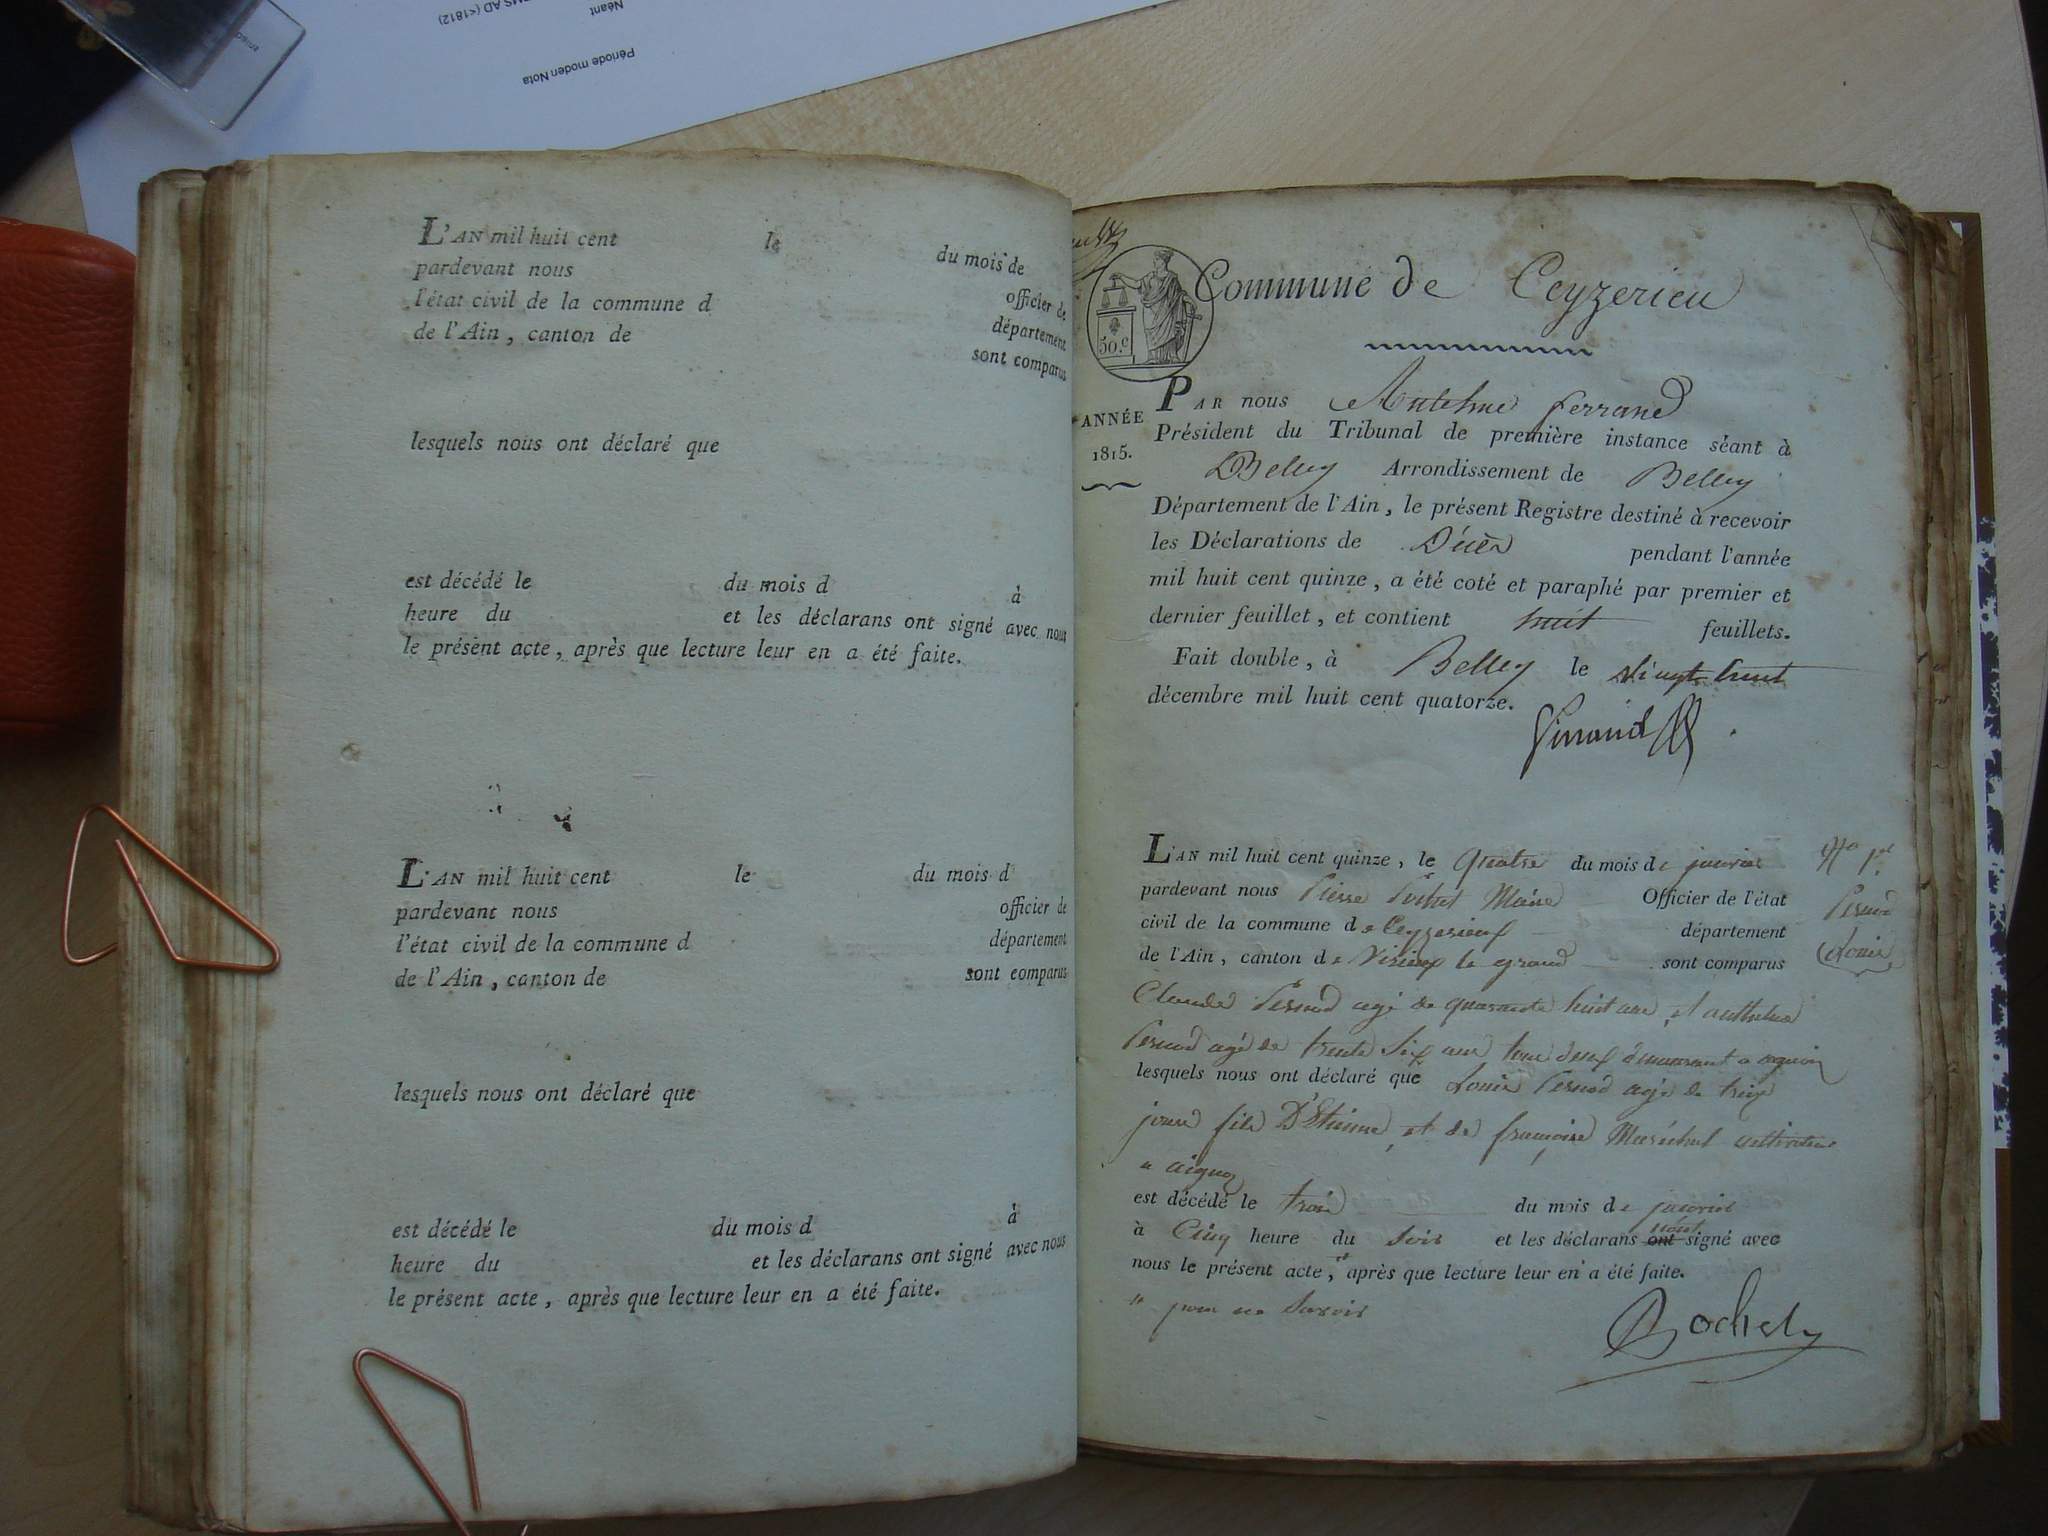 MS AD (<1812)
Néant
Période moden Nota
L'AN mil huit cent le du mois de
pardevant nous officier de
l'état civil de la commune d département
de l'Ain, canton de sont comparus
lesquels nous ont déclaré que
est décédé le du mois d à
heure du et les déclarans ont signé avec nous
le présent acte, après que lecture leur en a été faite.
L'AN mil huit cent le du mois d
pardevant nous officier de
l'état civil de la commune d département
de l'Ain, canton de sont comparus
lesquels nous ont déclaré que
est décédé le du mois d à
heure du et les déclarans ont signé avec nous
le présent acte, après que lecture leur en a été faite.
50.c
Commune de Ceyzerieu
ANNÉE
1815.
PAR nous Anthelme ferrand
Président du Tribunal de première instance séant à
Belley Arrondissement de Belley
Département de l'Ain, le présent Registre destiné à recevoir
les Déclarations de Décès pendant l'année
mil huit cent quinze, a été coté et paraphé par premier et
dernier feuillet, et contient huit feuillets.
Fait double, à Belley le vingt huit
décembre mil huit cent quatorze.
L'AN mil huit cent quinze, le quatre du mois de janvier
pardevant nous Pierre Maire Officier de l'état
civil de la commune de Ceyzerieux département
de l'Ain, canton de Virieux le grand sont comparus
Claude Pernod agé de quarante huit ans, et anthelme
Pernod agé de trente six ans tous deux demeurant a aignoz
lesquels nous ont déclaré que Louis Pernod agé de treize
jours fils D'Etienne, et de françoise Maréchal cultivateur
a aignoz
est décédé le trois du mois de janvier
à Cinq heure du soir et les déclarans ont nont signé avec
nous le présent acte," après que lecture leur en a été faite.
" pour ne savoir
Bochet
N° 1er
Pernod
Louis